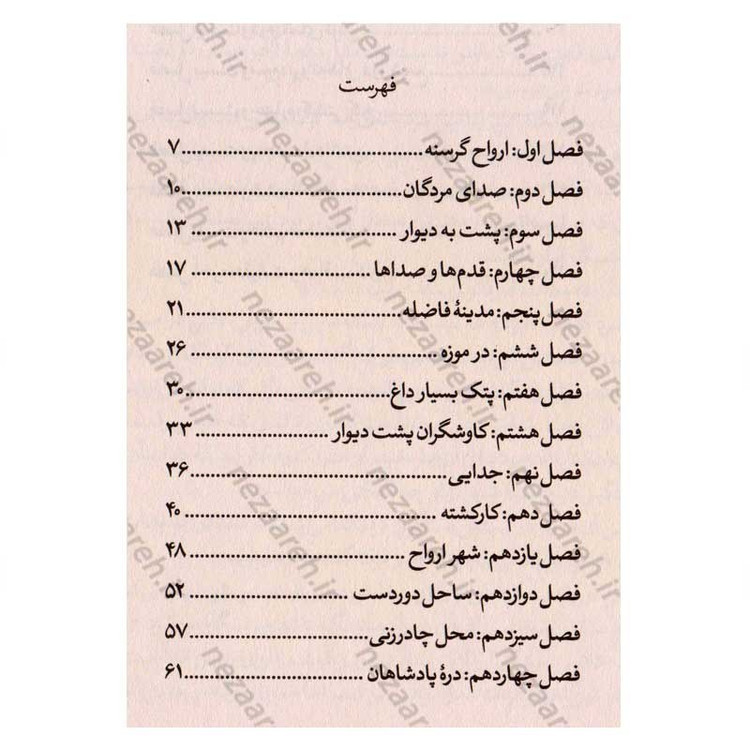 فهرست
فصل اول: ارواح گرسنه........................................۷
فصل دوم: صدای مردگان.....................................۱۰
فصل سوم: پشت به دیوار ................................... ۱۳
فصل چهارم: قدم‌ها و صداها .............................. ۱۷
فصل پنجم: مدینهٔ فاضله....................................۲۱
فصل ششم: در موزه ......................................... ۲۶
فصل هفتم: پتک بسیار داغ..................................۳۰
فصل هشتم: کاوشگران پشت دیوار ...................... ۳۳
فصل نهم: جدایی...........................................۳۶
فصل دهم: کارکشته .......................................... ۴۰
فصل یازدهم: شهر ارواح .................................... ۴۸
فصل دوازدهم: ساحل دوردست .......................... ۵۲
فصل سیزدهم: محل چادرزنی..............................۵۷
فصل چهاردهم: درهٔ پادشاهان ..............................۶۱
nezaareh.ir